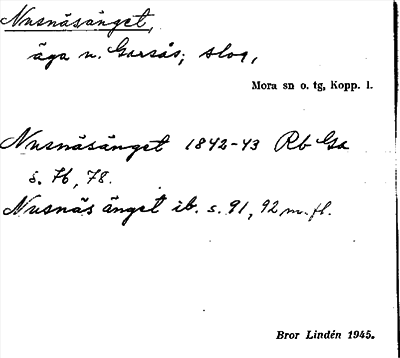 Nusnäsänget,
äga n. Garsås; slog,
Mora sn o. tg, Kopp. l.
Nusnäsänget 1842-43 Rb Ga
s. 76, 78.
Nusnäs änget ib. s. 91, 92 m. fl.
Bror Lindén 1945.